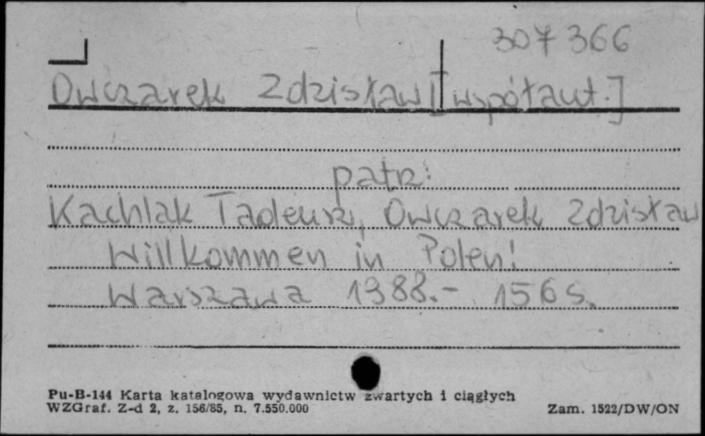 307 366
Owczarek Zdzisław [współaut.]
patrz:
Kachlak Tadeusz, Owczarek Zdzisław
Willkommen in Polen!
Warszawa 1988.- 156 s.
Pu-B-144 Karta katalogowa wydawnictw zwartych i ciągłych
WZGraf. Z-d 2, z. 156/85, n. 7.550.000 Zam. 1522/DW/ON